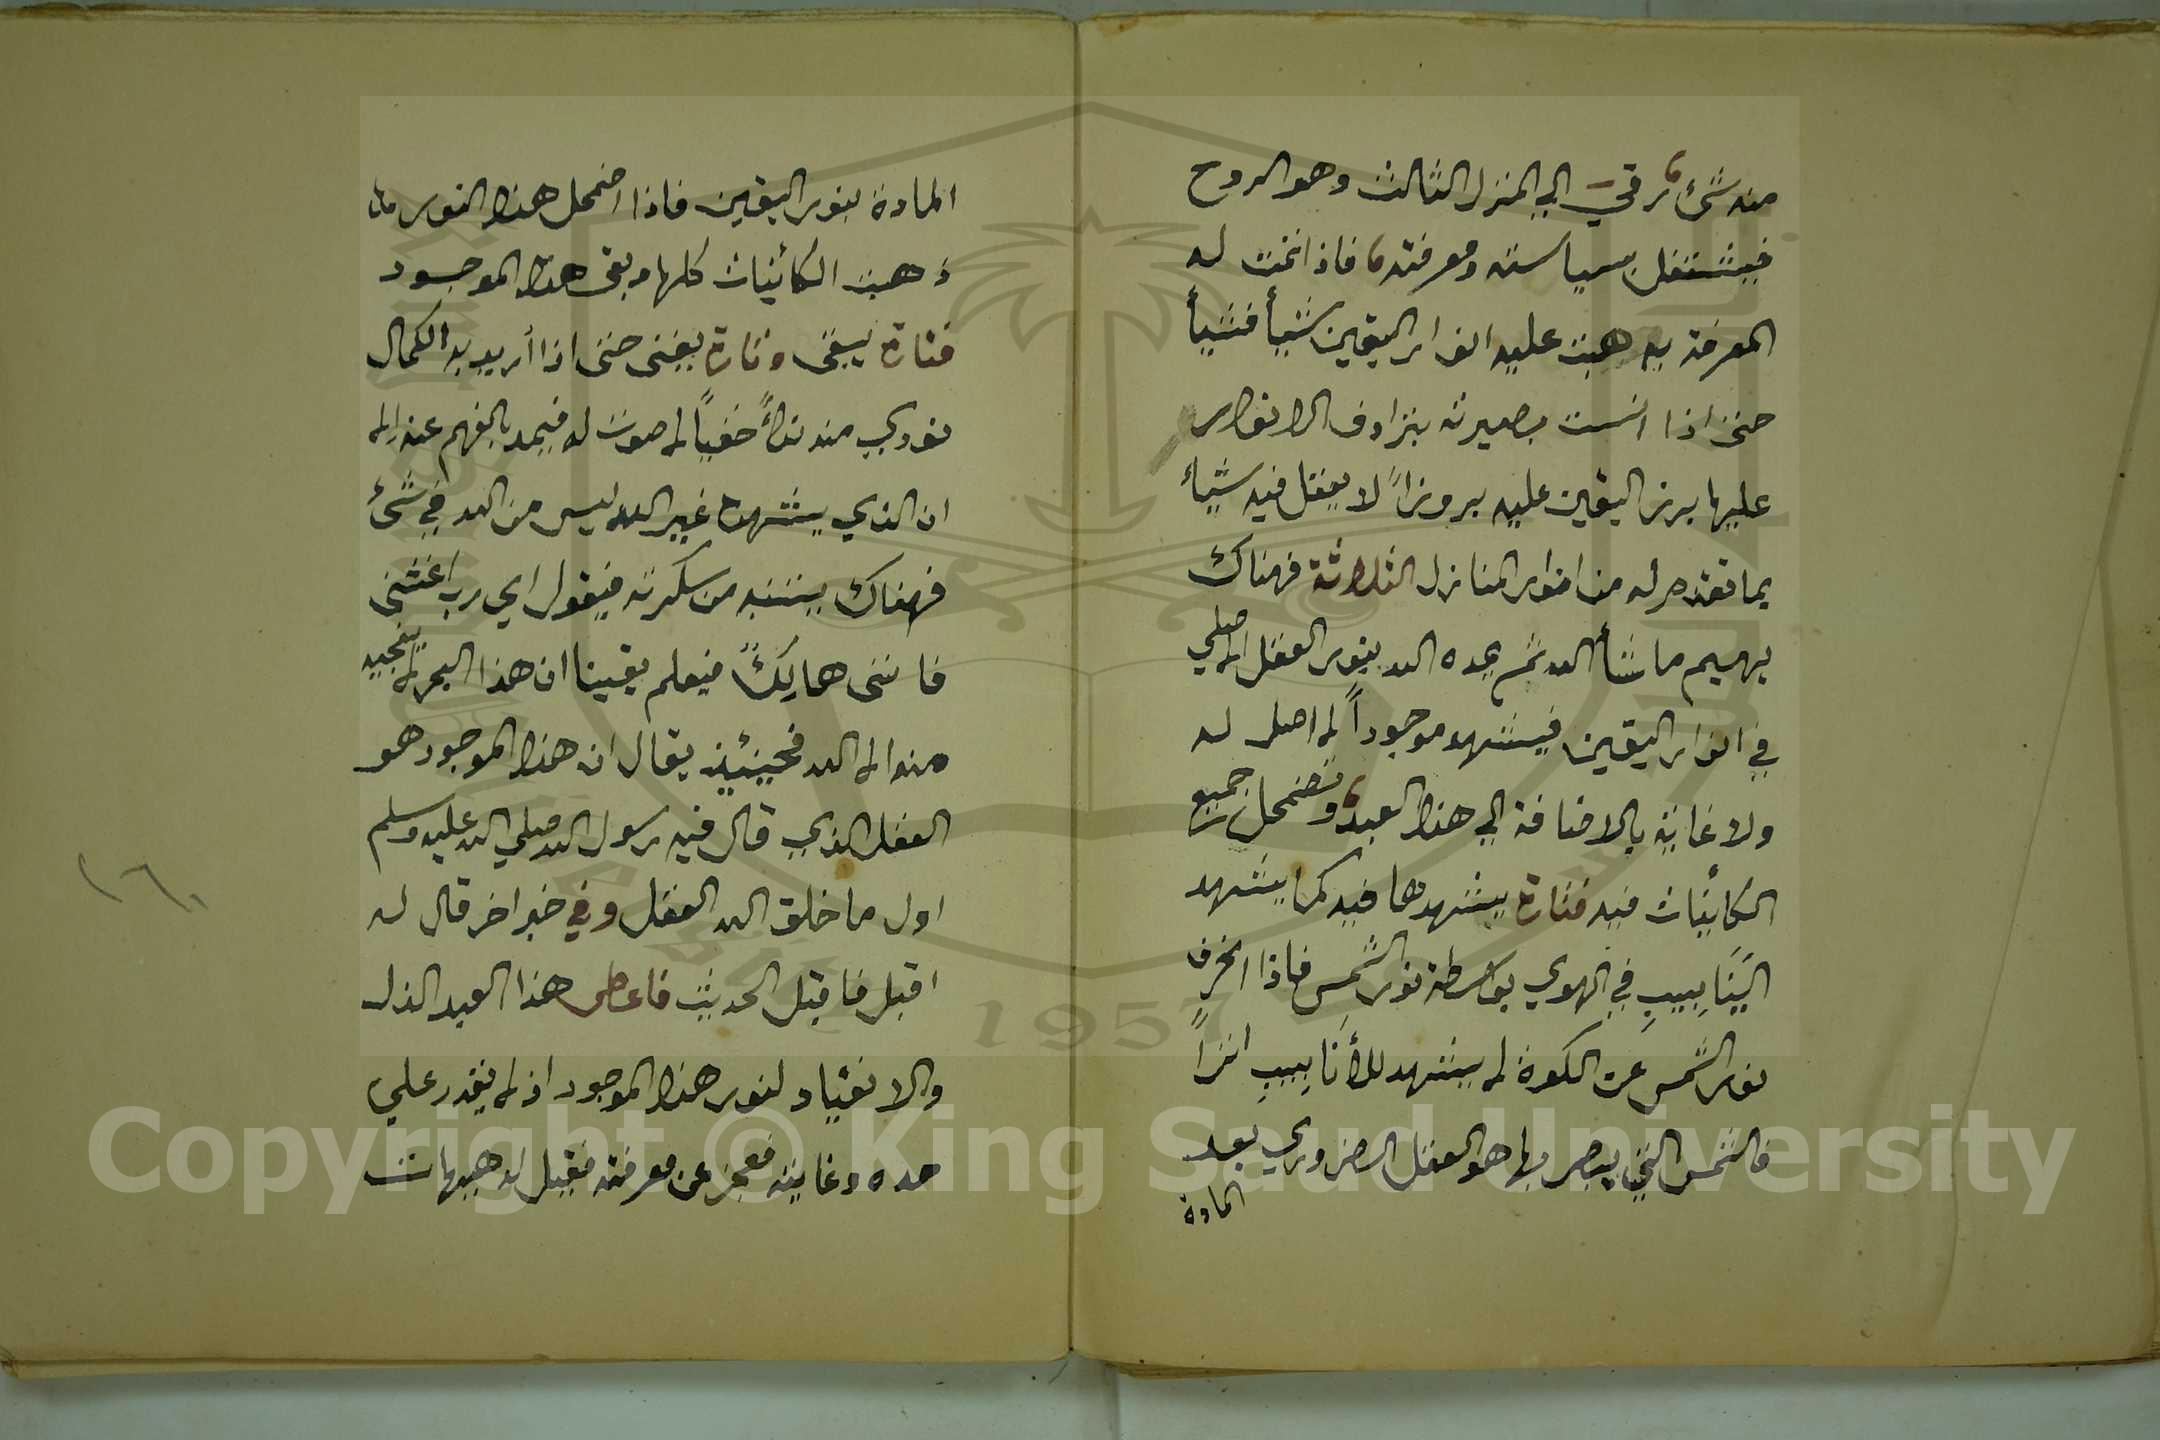 منه شئ ترقي الي المنزل الثالث وهو الروح
فيشتغل بسياسته ومعرفته فاذا تمت له
المعرفة به هبت عليه انوار اليقين شيأ فشيأ
حتى اذا انست بصيرته بترادف الانوار
عليها برز اليقين عليه بروزاً لا يعقل فيه شيأ
مما تقدم له من امور المنازل الثلاثة فهناك
يهيم ما شأ الله ثم يمده الله بنور العقل الاصلي
في انوار اليقين فيشهد موجوداً لا اصل له
ولا غاية بالاضافة الي هذا العبد وتضمحل جميع
الكائنات فيه فتارة يشهدها فيه كما يشهد
اليَنَابِيبِ في الهوي بواسطة نور الشمس فاذا انحرف
نور الشمس عن الكوة لم يشهد للأنَابِيبِ اثراً
فالشمس التي يبصر بها هو العقل الضروري بعد
المادة
المادة بنور اليقين فاذا اضمحل هذا النور
ذهبت الكائنات كلها وبقى هذا الموجود
فتارة يبقى وتارة يفنى حتى اذا أريد به الكمال
نودي منه نداً خفياً لا صوت له فيمد بالفهم عنه الا
ان الذي يشهده غير الله ليس من الله في شئ
فهناك يتنبه من سكرته فيقول اي رب اغثنى
فاننى هالكٌ فيعلم يقينا ان هذا البحر لا ينجيه
منه الا الله فحينئذ يقال ان هذا الموجود هو
العقل الذي قال فيه رسول الله صلي الله عليه وسلم
اول ما خلق الله العقل وفي خبر اخر قال له
اقبل فاقبل الحديث فاعطى هذا العبد الذل
والانقياد لنور هذا الموجود اذ لا يقدر علي
حده وغايته فعجز عن معرفته فقيل له هيهات
Copyright © King Saud University
1957